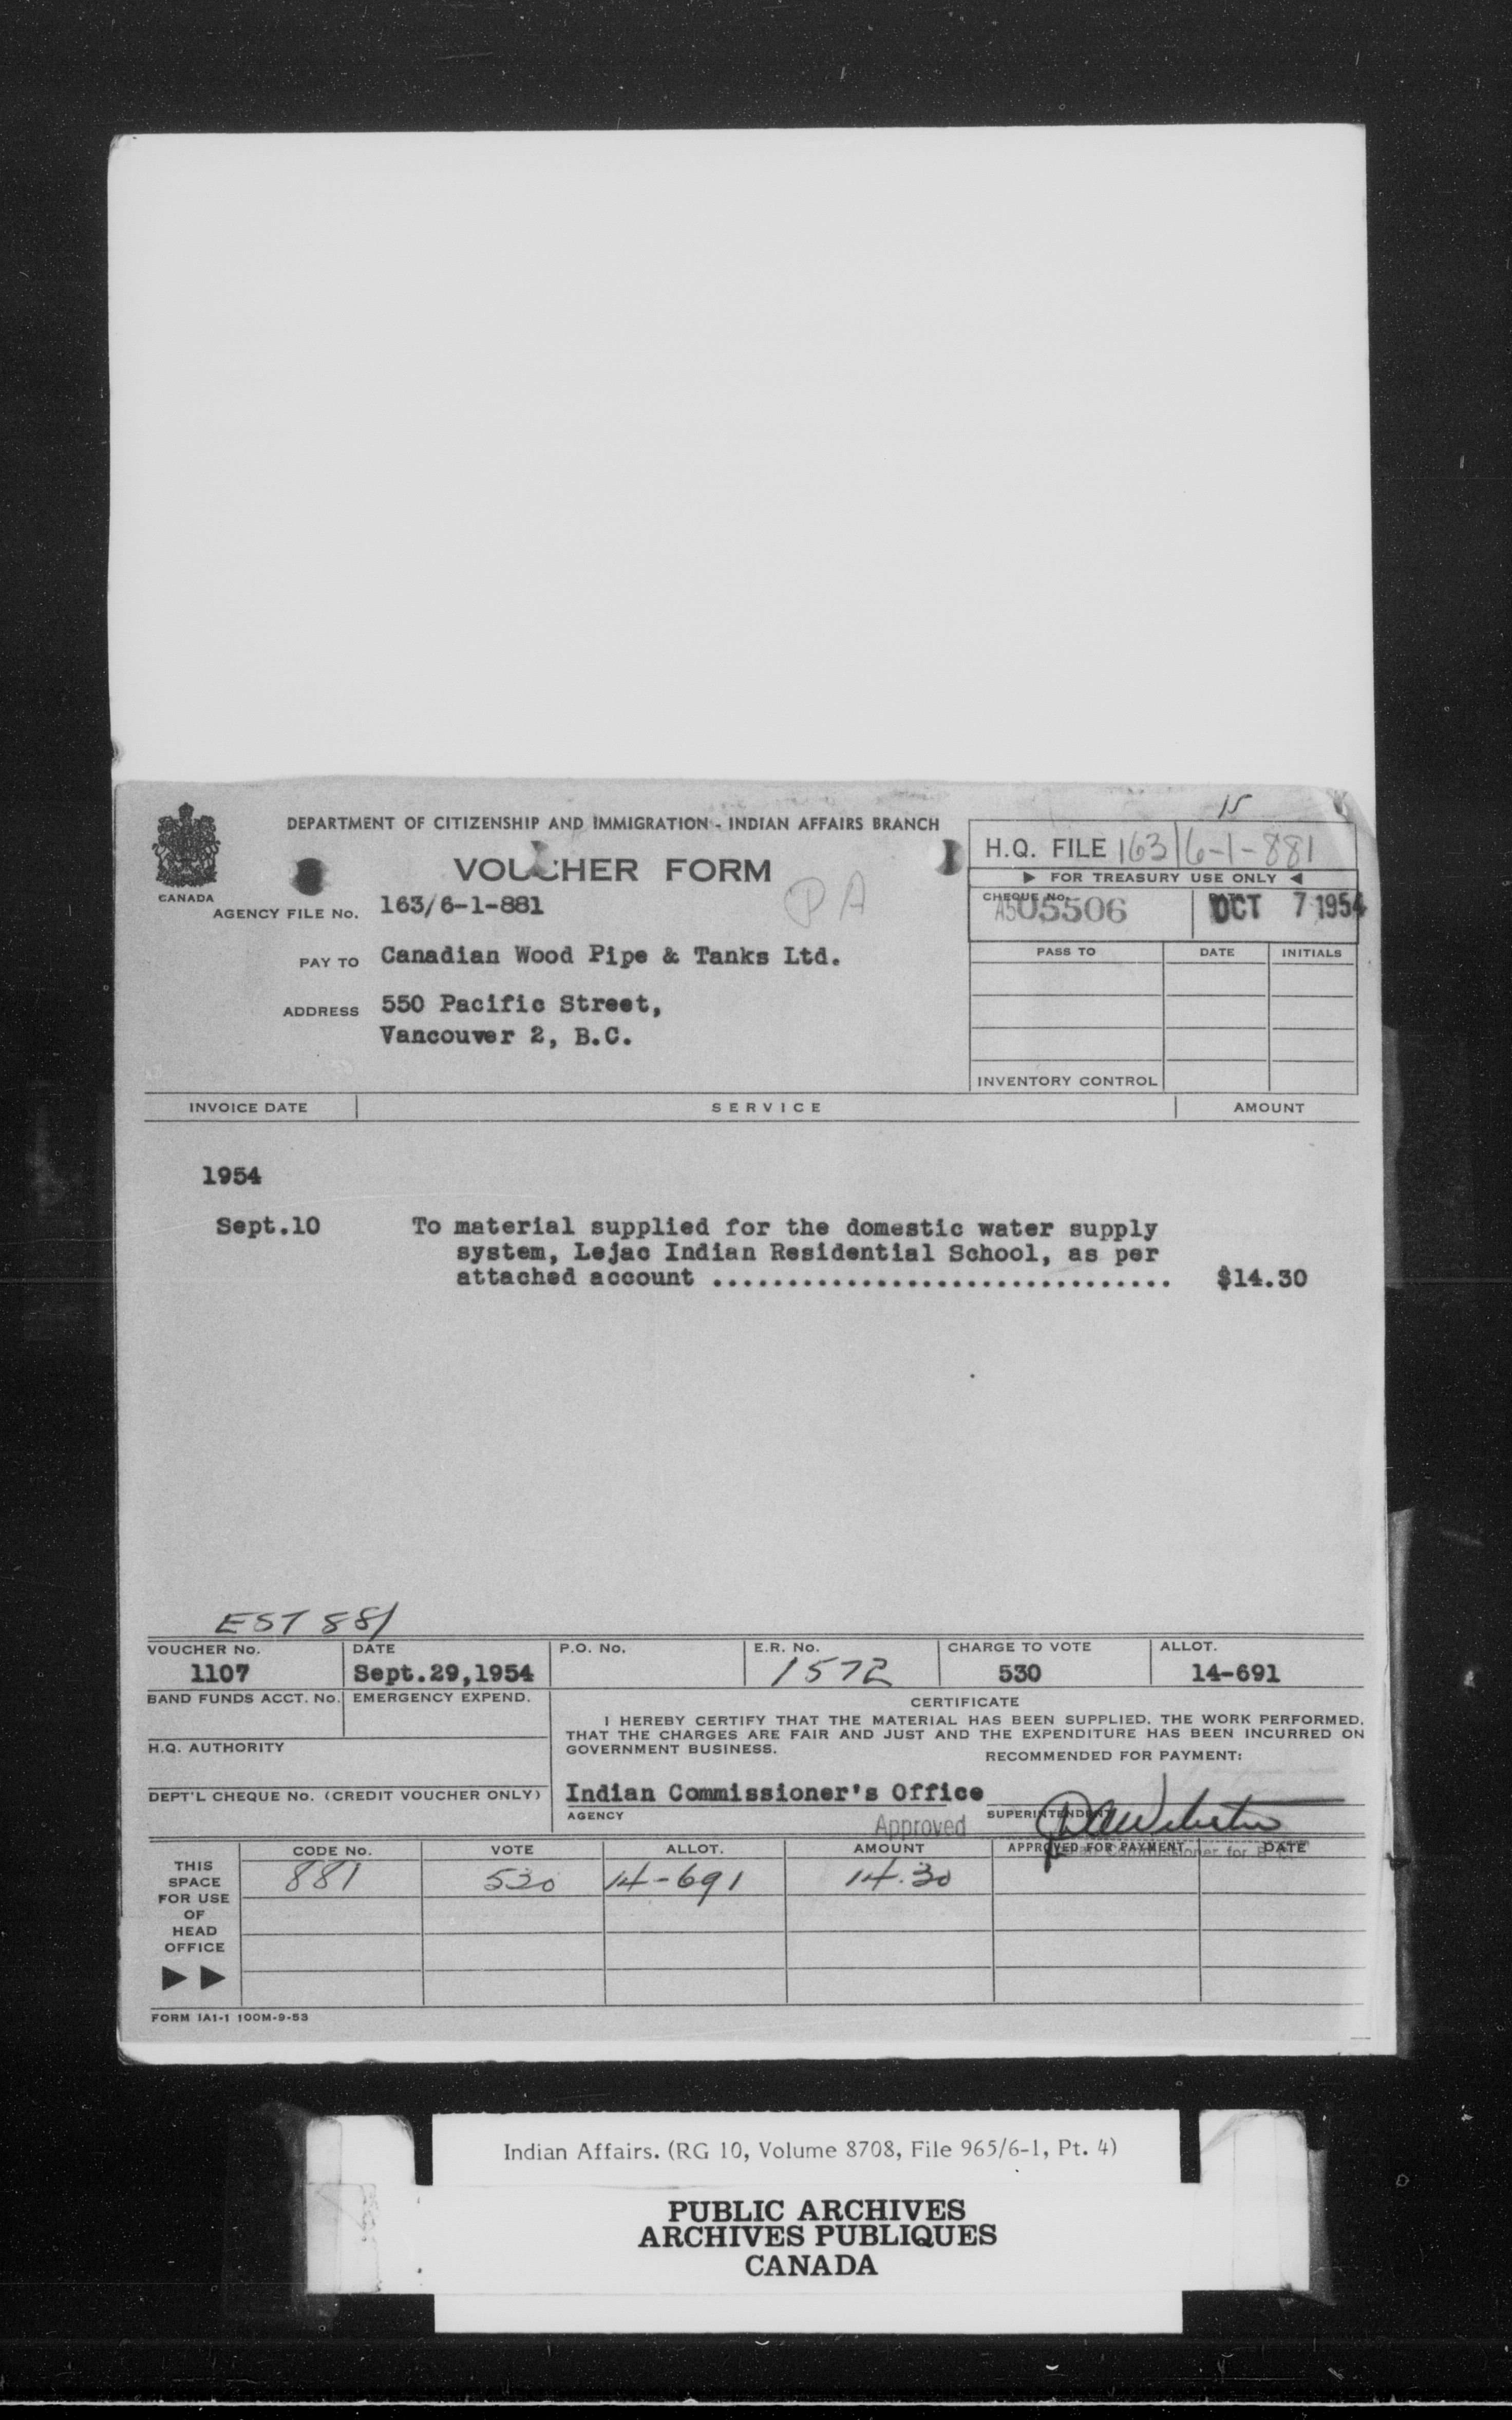 15
DEPARTMENT OF CITIZENSHIP AND IMMIGRATION - INDIAN AFFAIRS BRANCH
VOUCHER FORM
CANADA
H.Q. FILE 163/6-1-881
FOR TREASURY USE ONLY
AGENCY FILE No. 163/6-1-881
PA
CHEQUE No. A505506 OCT 7 1954
PAY TO Canadian Wood Pipe & Tanks Ltd.
PASS TO DATE INITIALS
ADDRESS 550 Pacific Street,
Vancouver 2, B.C.
INVENTORY CONTROL
INVOICE DATE SERVICE AMOUNT
1954
Sept.10 To material supplied for the domestic water supply
system, Lejac Indian Residential School, as per
attached account ................................ $14.30
EST 881
VOUCHER No. DATE P.O. No. E.R. No. CHARGE TO VOTE ALLOT.
1107 Sept.29,1954 1572 530 14-691
BAND FUNDS ACCT. No. EMERGENCY EXPEND.
CERTIFICATE
I HEREBY CERTIFY THAT THE MATERIAL HAS BEEN SUPPLIED, THE WORK PERFORMED,
THAT THE CHARGES ARE FAIR AND JUST AND THE EXPENDITURE HAS BEEN INCURRED ON
GOVERNMENT BUSINESS.
H.Q. AUTHORITY
RECOMMENDED FOR PAYMENT:
DEPT'L CHEQUE No. (CREDIT VOUCHER ONLY)
Indian Commissioner's Office
AGENCY
Approved
SUPERINTENDENT
THIS SPACE FOR USE OF HEAD OFFICE
CODE No. VOTE ALLOT. AMOUNT APPROVED FOR PAYMENT DATE
881 530 14-691 14.30
FORM IA1-1 100M-9-53
Indian Affairs. (RG 10, Volume 8708, File 965/6-1, Pt. 4)
PUBLIC ARCHIVES
ARCHIVES PUBLIQUES
CANADA